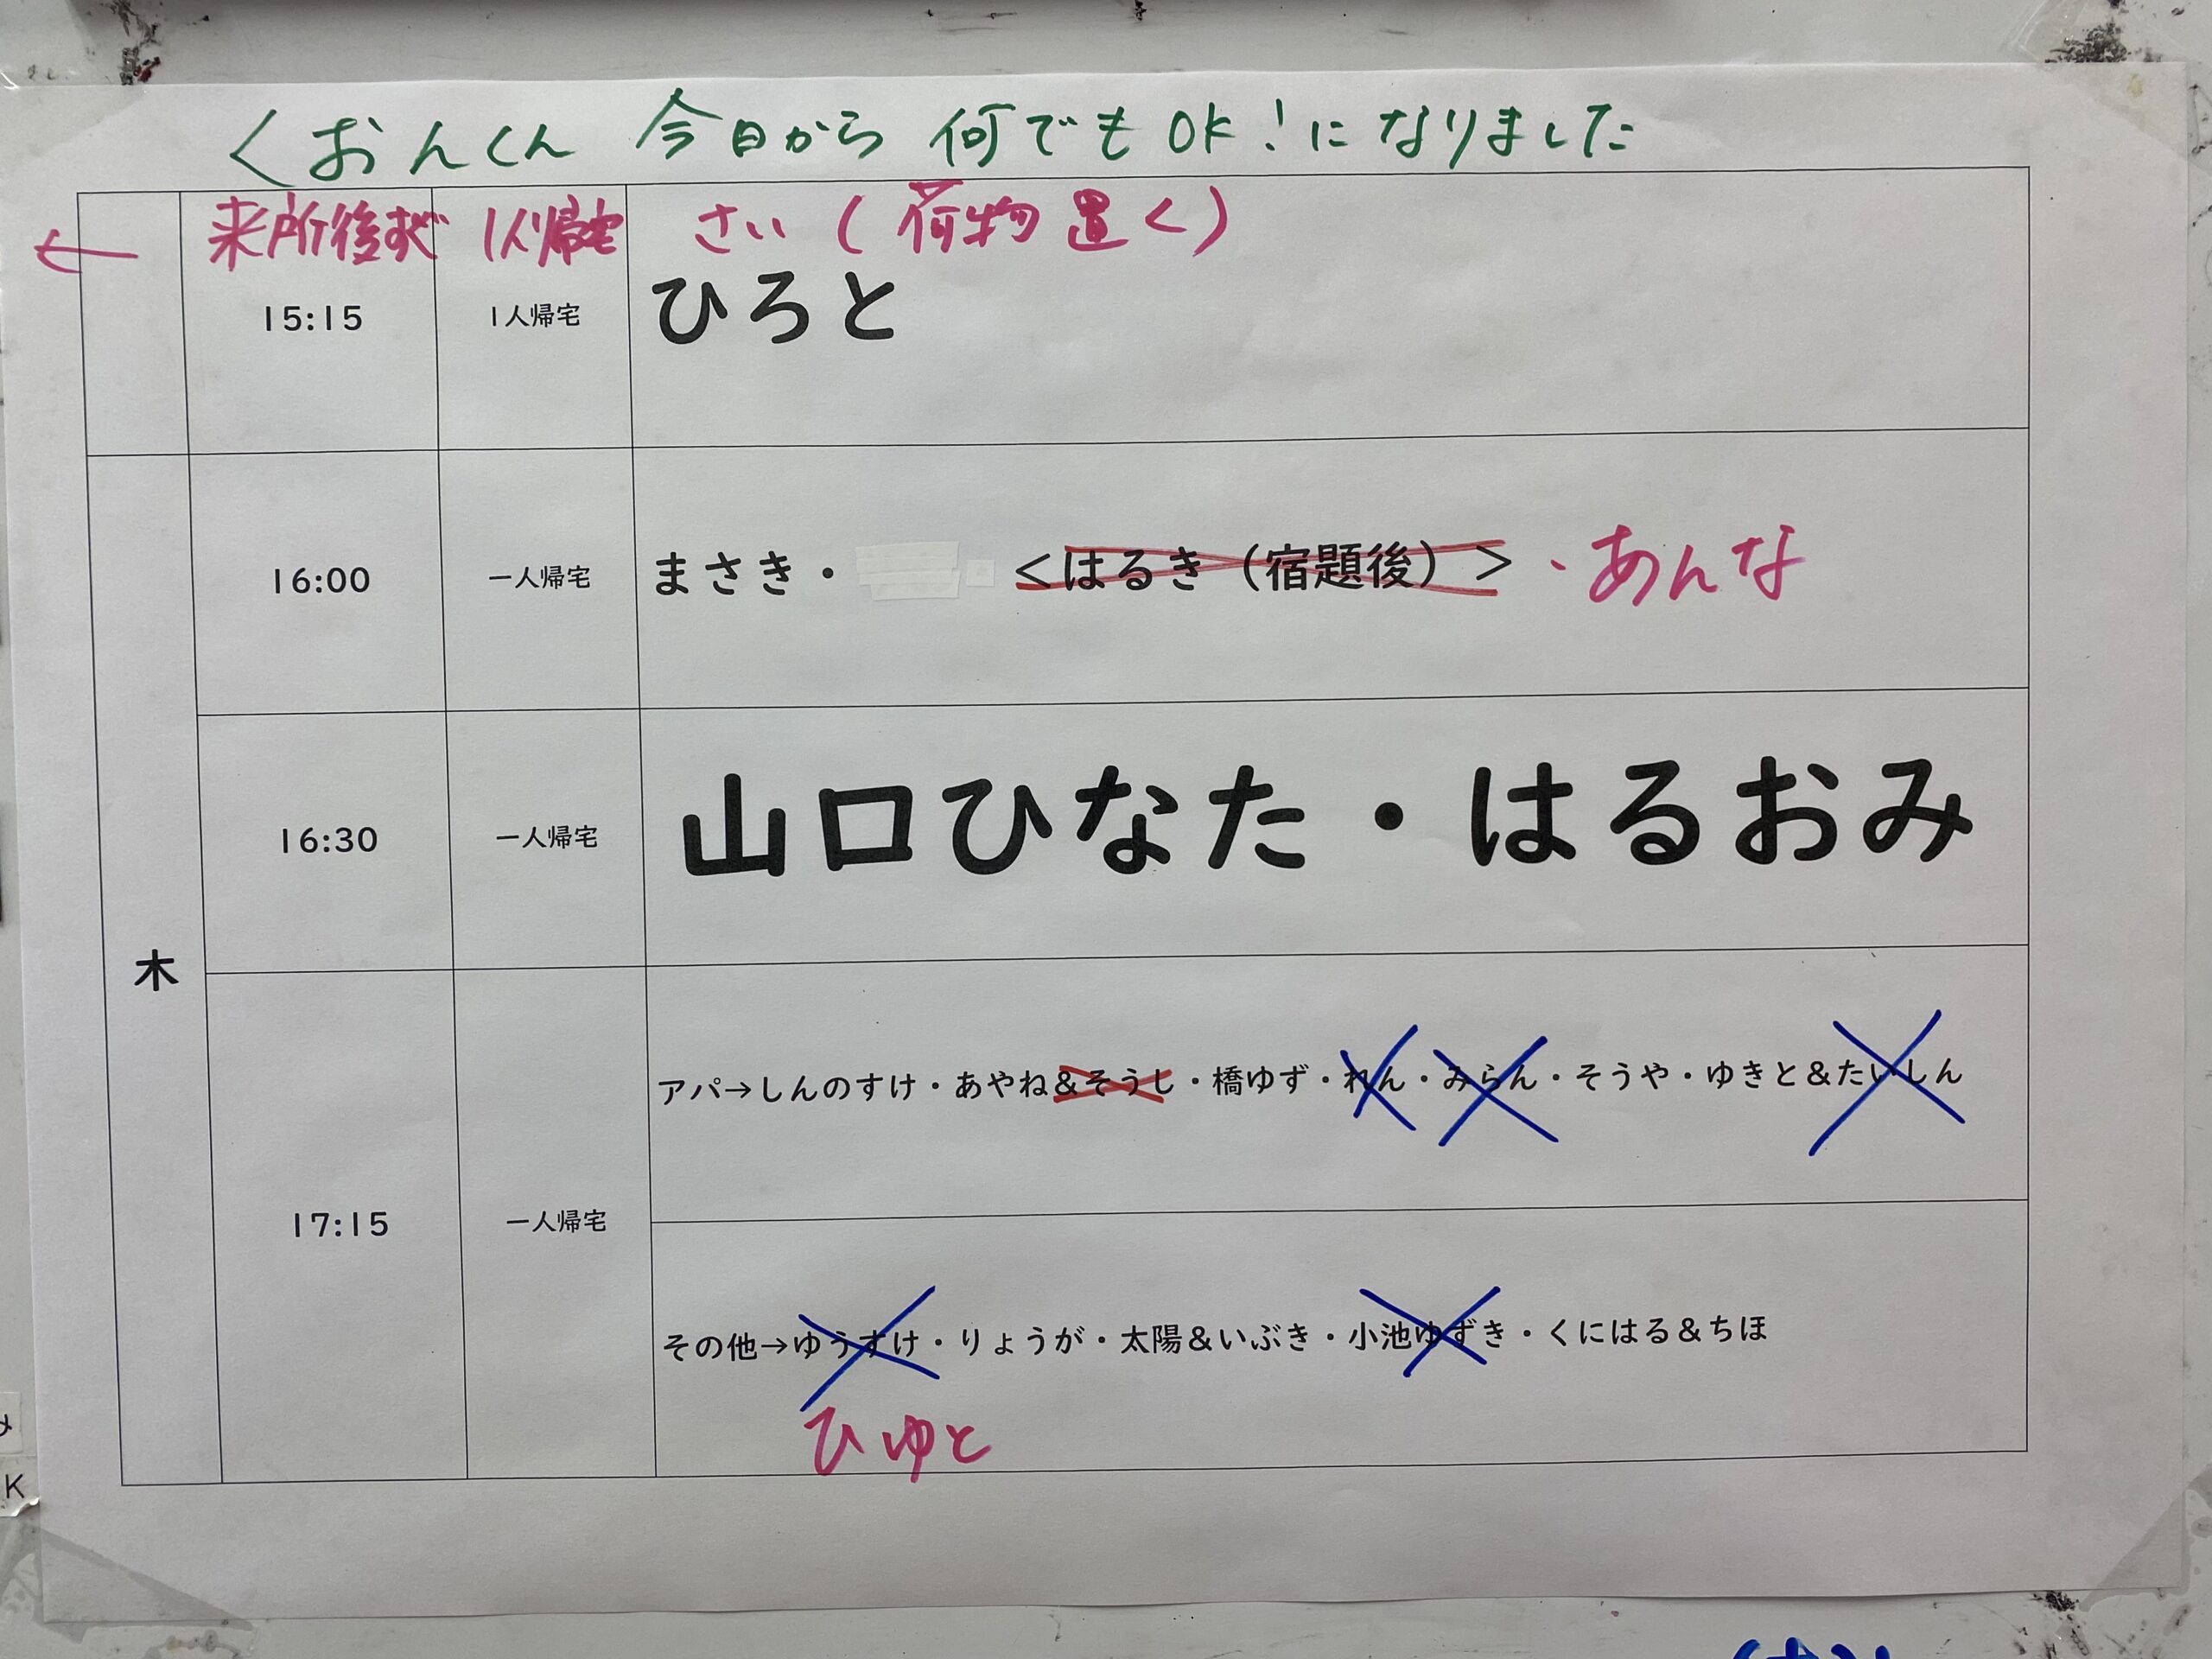 くおんくん 今日から 何でもOK!になりました
← 来所後すぐ 1人帰宅 さい(荷物置く)
15:15 1人帰宅 ひろと
16:00 一人帰宅 まさき・ <はるき(宿題後)> ・あんな
16:30 一人帰宅 山口ひなた・はるおみ
木
アパ→しんのすけ・あやね&そうじ・橋ゆず・れん・みらん・そうや・ゆきと&たいしん
17:15 一人帰宅
その他→ゆうすけ・りょうが・太陽&いぶき・小池ゆずき・くにはる&ちほ
ひゆと
K